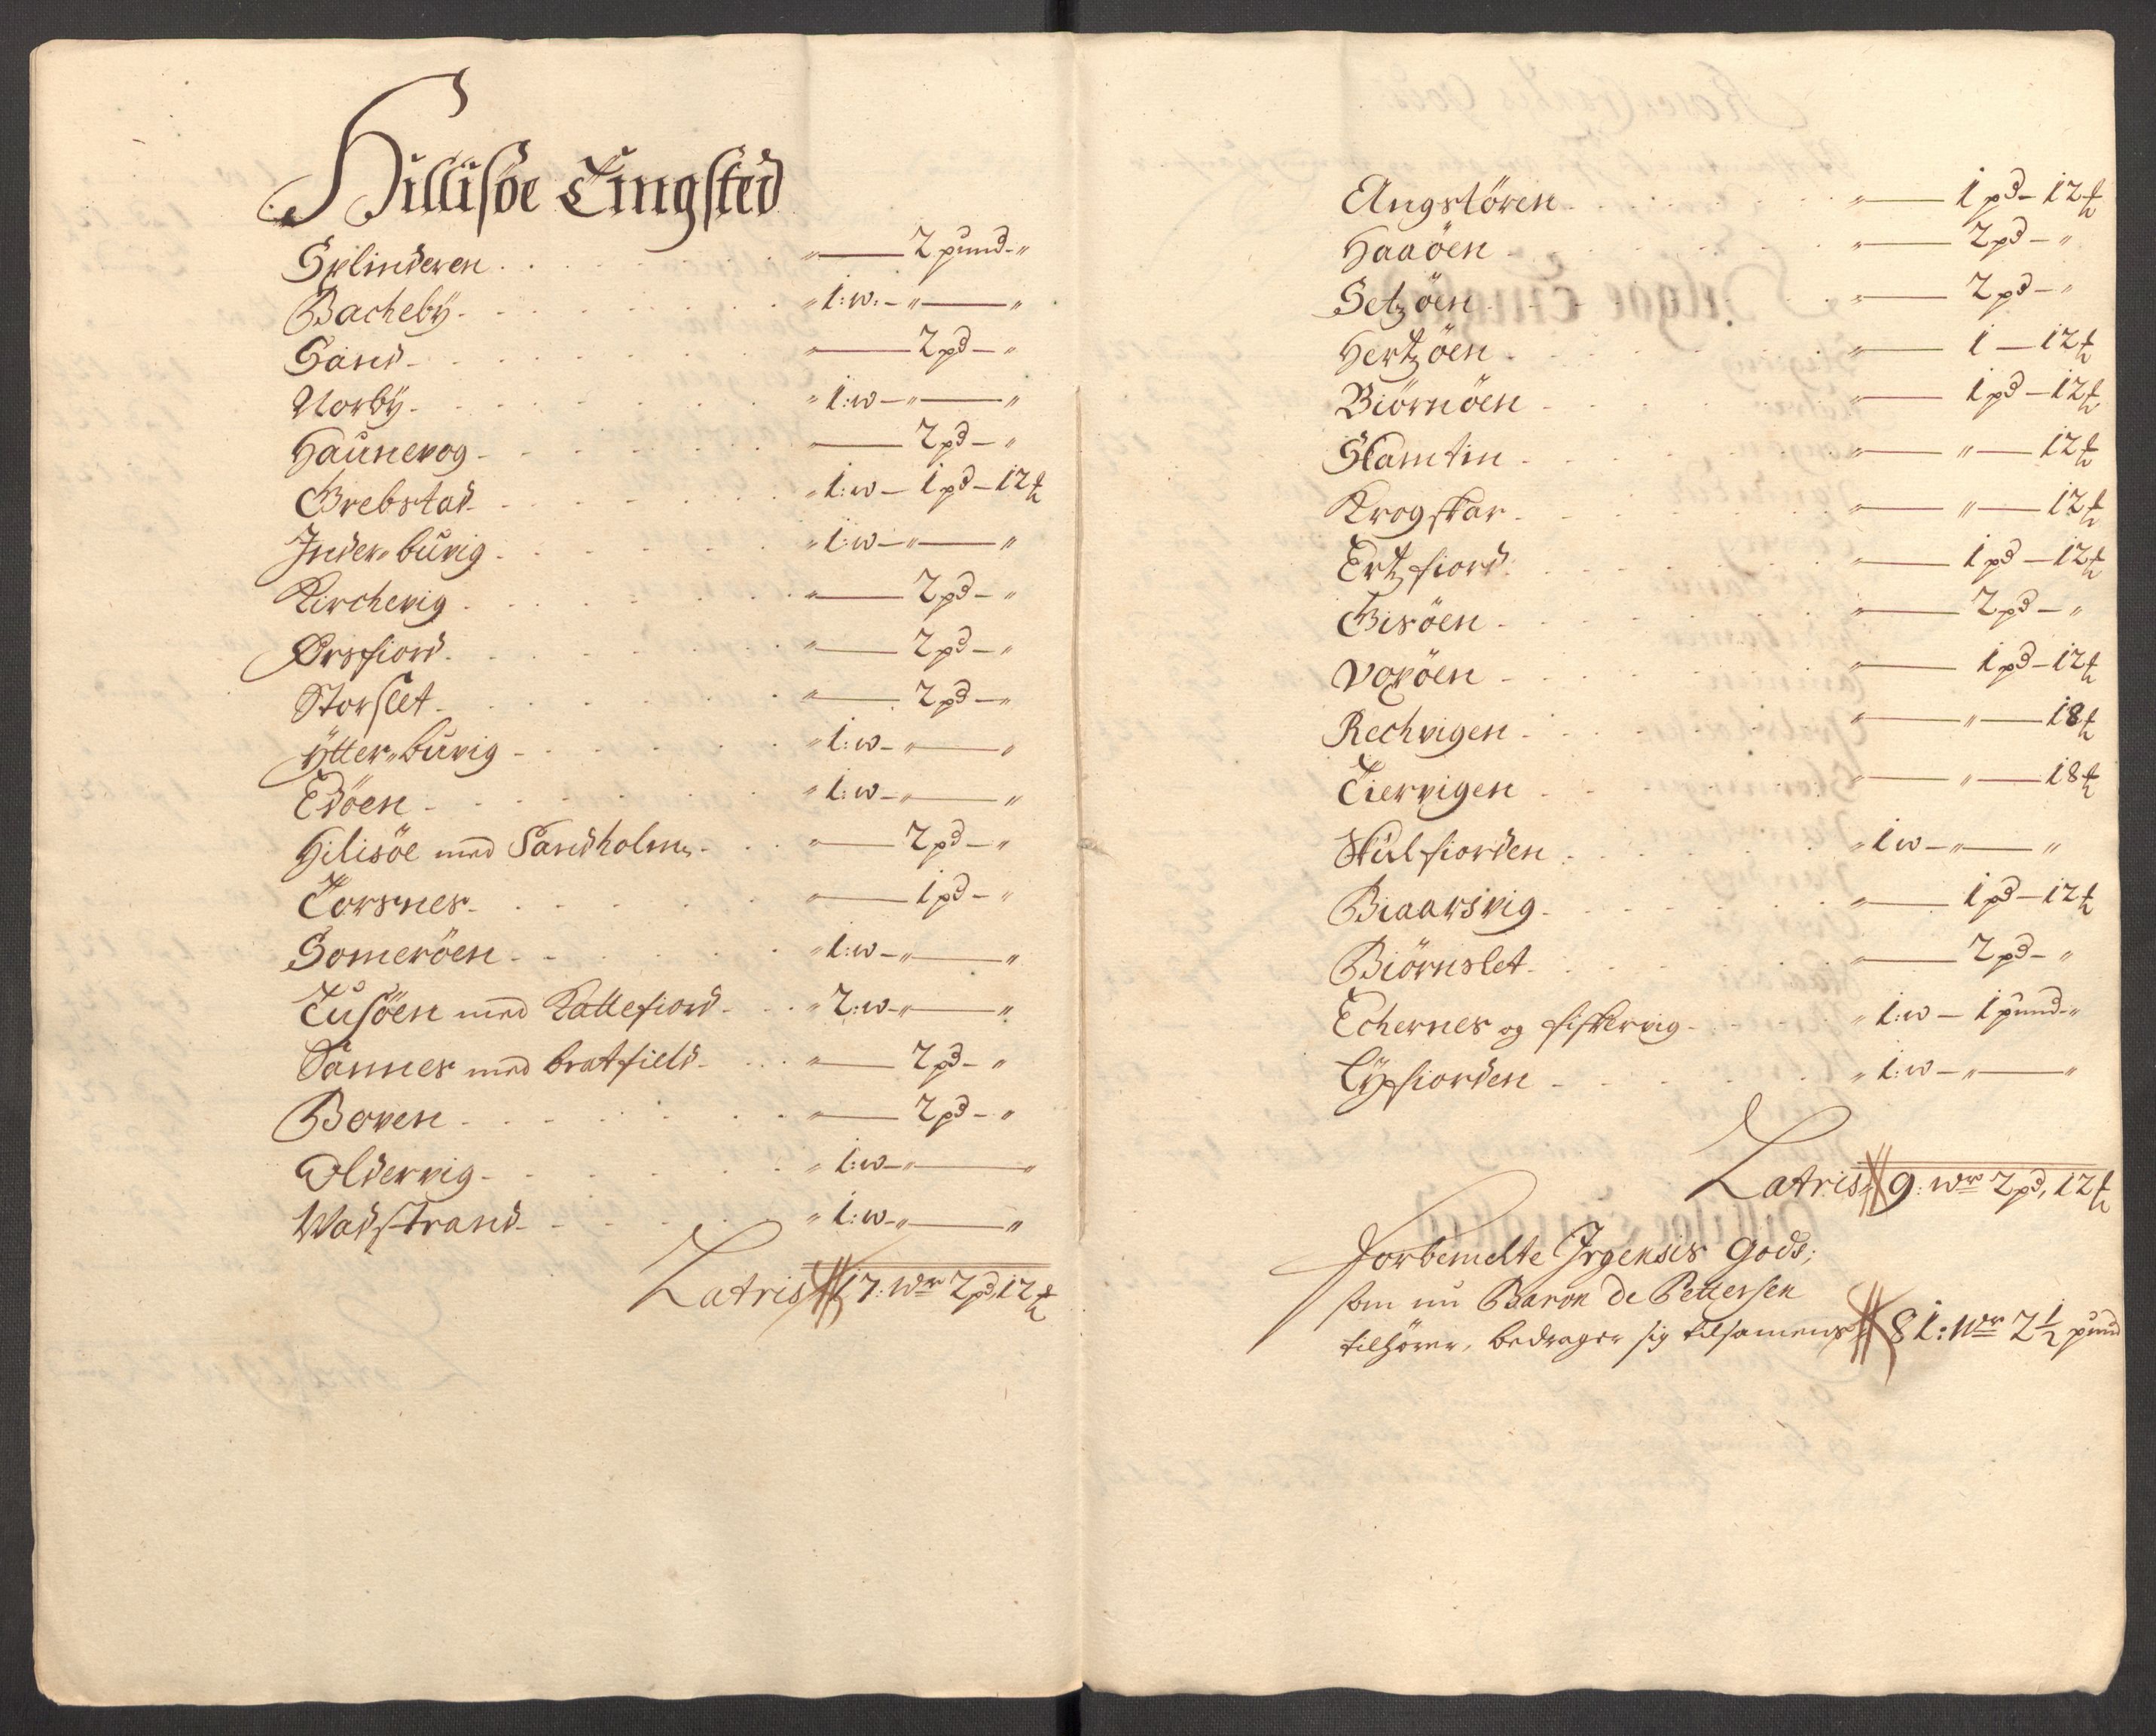 Hillisöe Tingsted
Splinderen . . . " — 2 pund - "
Bacheby . . . " 1: w: - " — "
Sand . . . " — 2 pd — "
Norby . . . " 1: w — " — "
Haunevog . . . — 2 pd — "
Grebstad . . . " 1: w — 1 pd — 12 ℔
Inder buvig . . . " 1: w — " — "
Kirchevig . . . " — 2 pd — "
Ørsfiord . . . " — 2 pd — "
Storslet . . . " — 2 pd — "
Ytter buvig . . . " 1: w — " — "
Edöen . . . " 1: w — " — "
Hilisöe med Sandholm . . . " — 2 pd — "
Torsnes . . . " — 1 pd — "
Someröen . . . " 1: w — " — "
Tusöen med Kattefiord . . . " 2: w — " — "
Sannes med bratfield . . . " — 2 pd — "
Boven . . . " — 2 pd — "
Oldervig . . . " 1: w — " — "
Wadstrand . . . " 1: w — " — "
Latris 17: Wr 2 pd, 12 ℔
Angstören . . . " — 1 pd — 12 ℔
Haaöen . . . " — 2 pd — "
Setzöen . . . " — 2 pd — "
Hertzöen . . . " — 1 — 12 ℔
Biörnöen . . . " — 1 pd — 12 ℔
Skamtin . . . " — " — 12 ℔
Krogskar . . . " — " — 12 ℔
Ertzfiord . . . " — 1 pd — 12 ℔
Gisöen . . . " — 2 pd — "
Voxöen . . . " — 1 pd — 12 ℔
Rechvigen . . . " — " — 18 ℔
Tiervigen . . . " — " — 18 ℔
Skulfiorden . . . " 1 w — " — "
Biaarsvig . . . " — 1 pd — 12 ℔
Biörnslet . . . " — 2 pd — "
Echernes og fiskervig . . . " 1: w — 1 pund - "
Lypfiorden . . . " 1: w — " — "
Latris 9: Wr 2 pd, 12 ℔
Forbemelte Irgensis Gods;
som nu Baron de Pettersen
tilhörer, bedrager sig tilsamens 81: Wr 2 1/2 pund